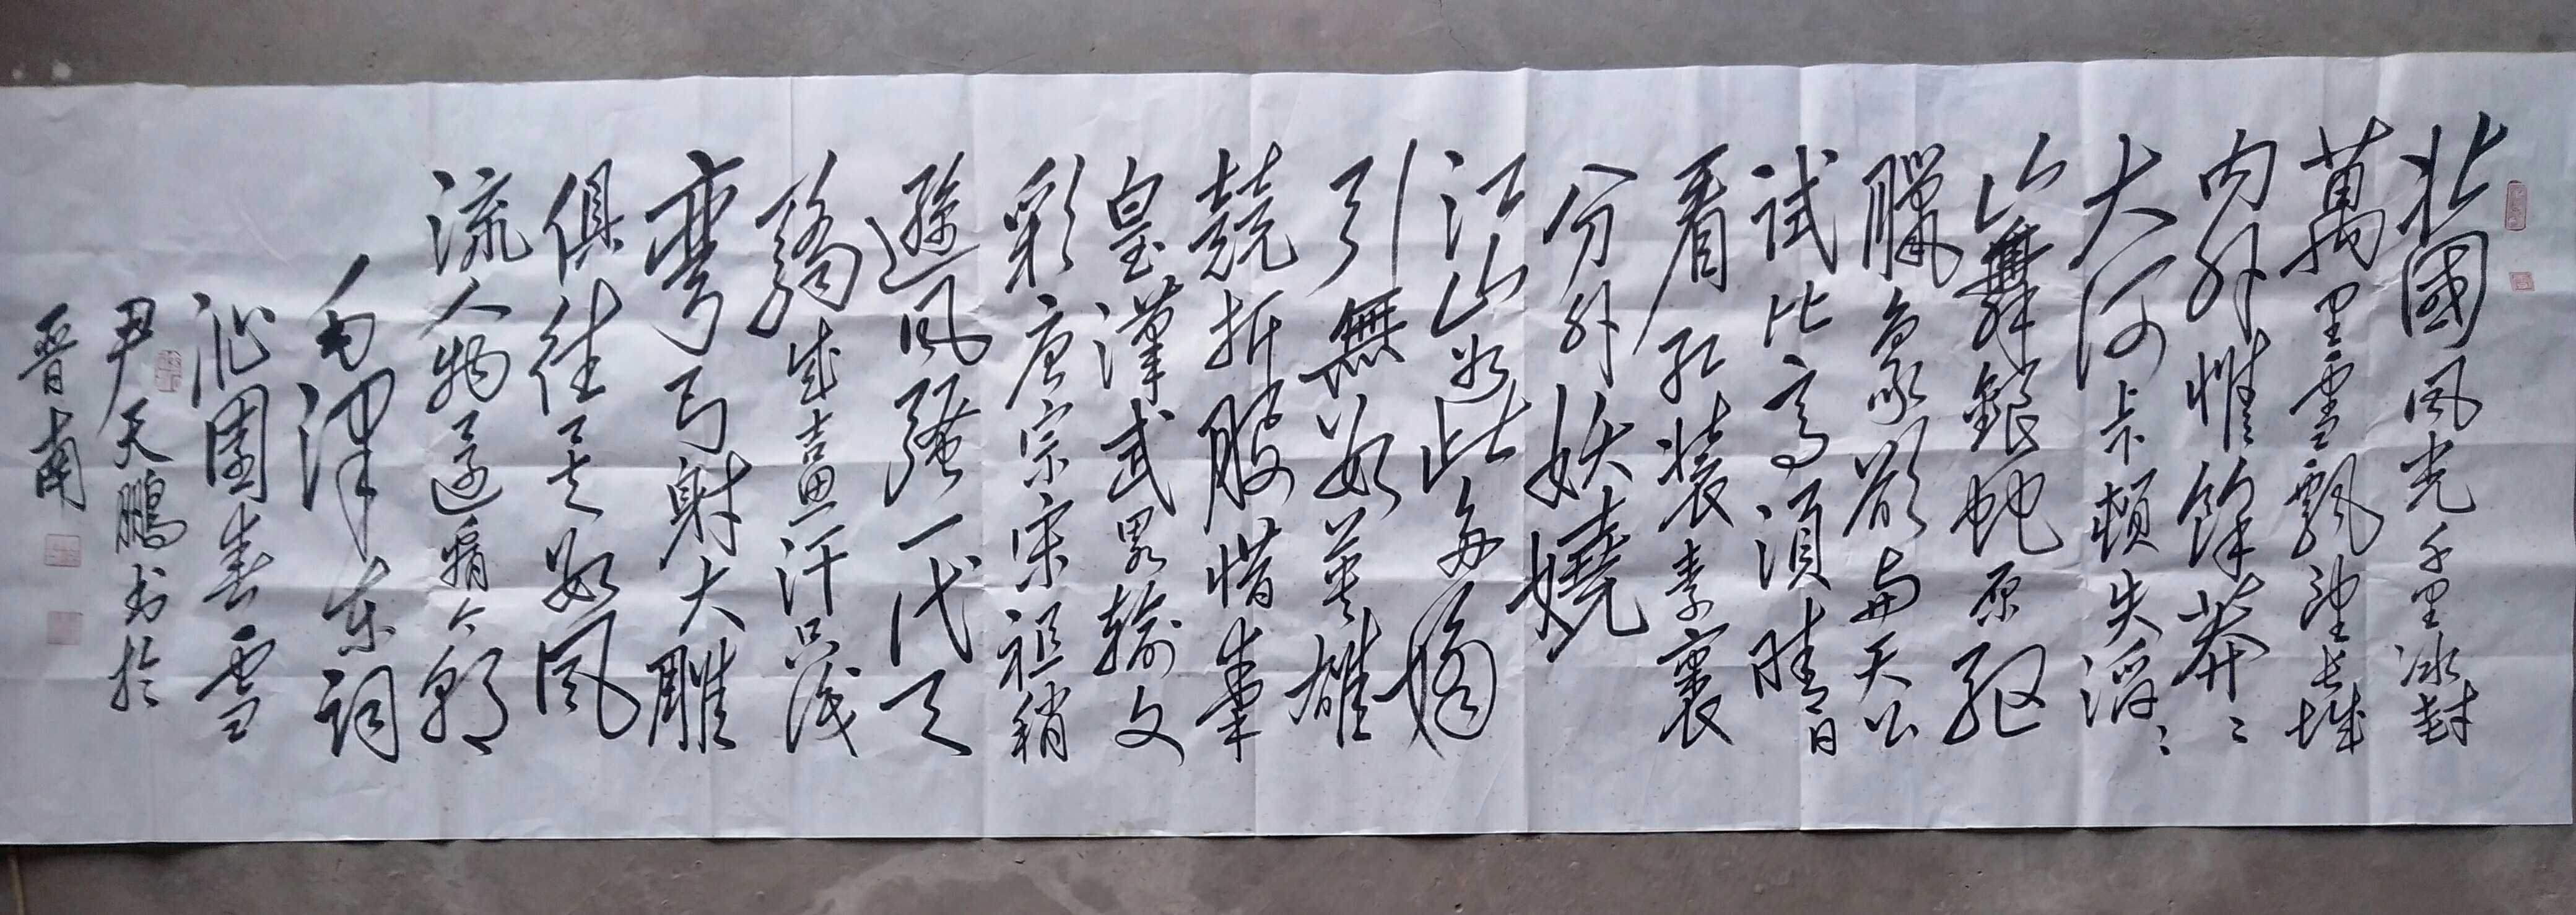 北國風光千里冰封
萬里雪飄望長城
內外惟餘莽々
大河上下頓失滔々
山舞銀蛇原驱
臘象欲與天公
試比高須晴日
看紅裝素裹
分外妖嬈
江山如此多嬌
引無數英雄
競折腰惜秦
皇漢武畧輸文
彩唐宗宋祖稍
遜風騷一代天
驕成吉思汗只識
彎弓射大雕
俱往矣數風
流人物還看今朝
毛澤东詞
沁園春雪
尹天鵬书於
晉南